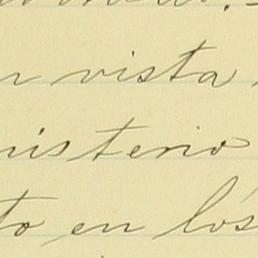 n vista
nisterio
to en los